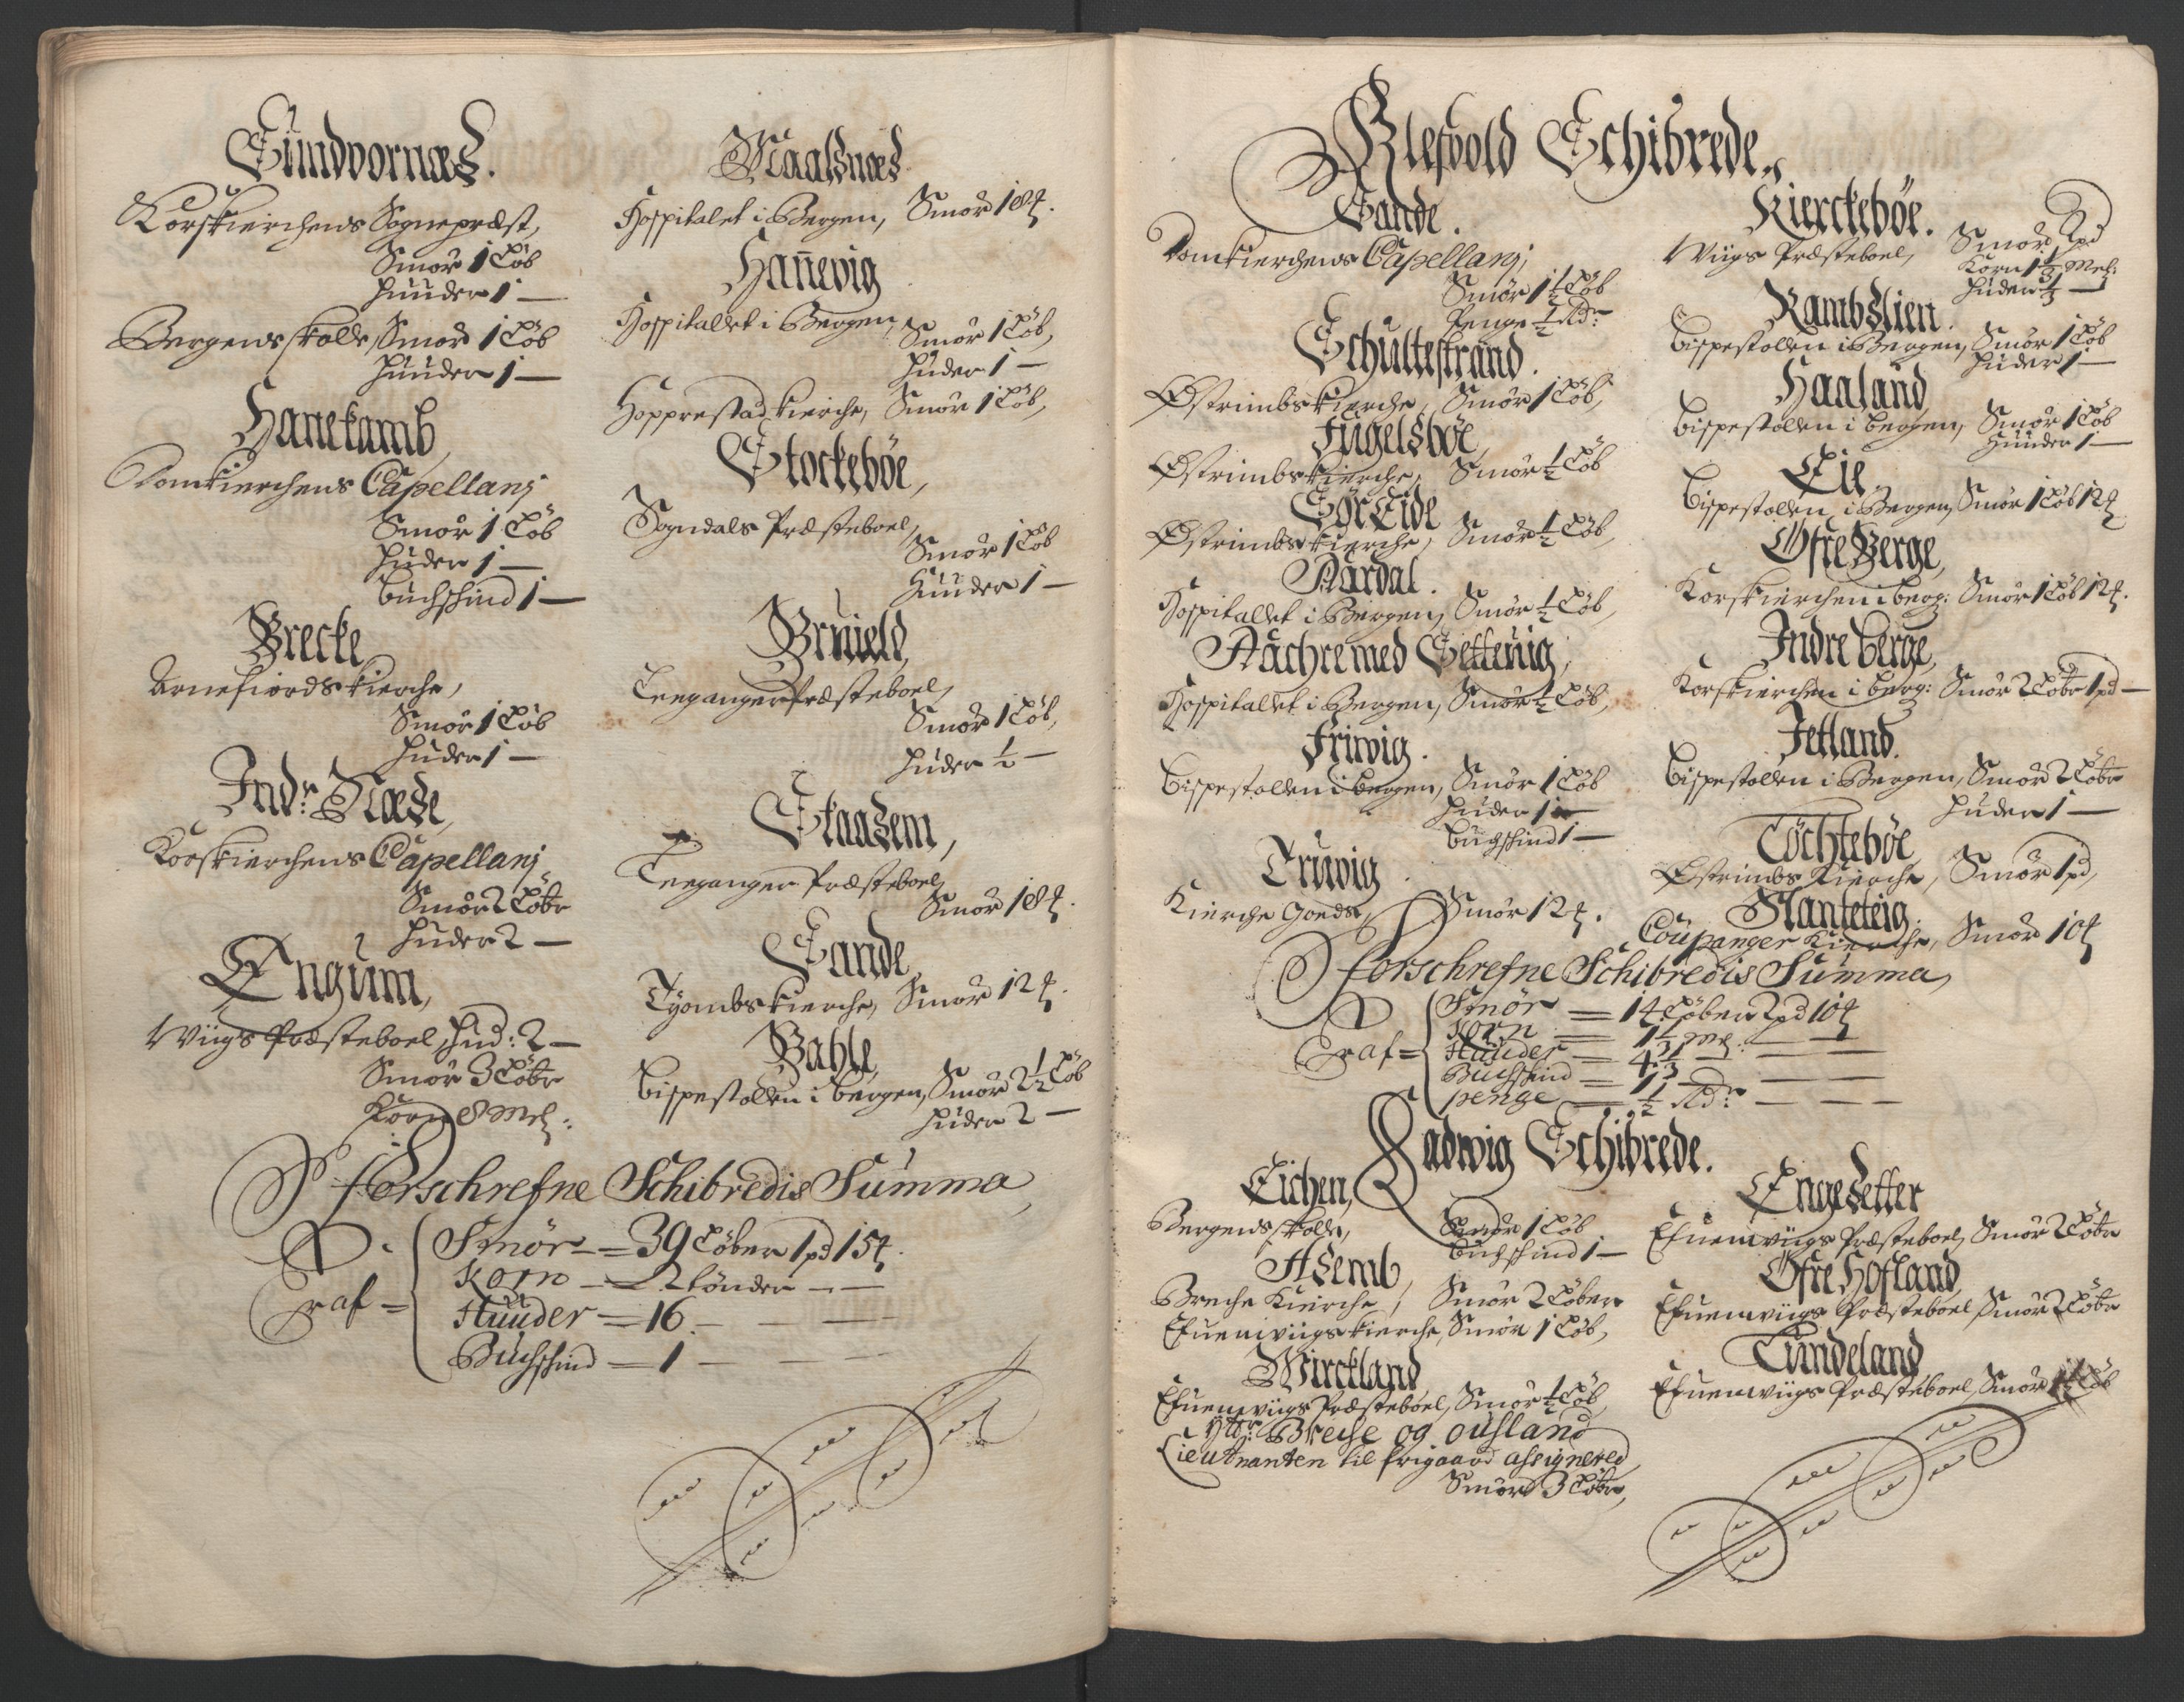 Sundvornæs.
Korskierchens Sognepræst,
Smør 1 Løb
Huuder 1 —
Bergens skolle, Smør 1 Løb
Huuder 1 —
Hanekamb,
Domkierchens Capellanj
Smør 1 Løb
Huder 1 —
buchschind 1 —
Brecke,
Arnefiords Kierche,
Smør 1 Løb
Huder 1 —
Indr Næse,
Korskierchens Capellanj
Smør 2 Løbr
Huder 2 —
Engum,
Wiigs Præsteboel, Hud: 2 —
Smør 3 Løbr
Korn 8 Mel:
Maalsnæs
Hospitalet i Bergen, Smør 18 ℔.
Hannevig
Hospitallet i Bergen, Smør 1 Løb,
Huder 1 —
Hopprestad Kierche, Smør 1 Løb,
Stockebøe,
Sogndals Præsteboel,
Smør 1 Løb
Huuder 1 —
Leeganger Præsteboel,
Smør 1 Løb,
Huder ½ —
Skaasem,
Leeganger Præsteboel,
Smør 18 ℔.
Sande,
Tyombs Kierche, Smør 12 ℔.
Bahle,
bispestollen i bergen, Smør 2½ Løb
Huder 2 —
Forschrefne Schibredis Summa,
Er af = Smør — = 39 Løber 1 pd 15 ℔.
Korn — = 2 tønder — —
Huuder — = 16. — — —
Buchschind — = 1 — — —
Klefvold Schibrede.
Sande.
Domkierchens Capellanj
Smør 1½ Løb
Penge ½ Rdr
Schultestrand.
Østrimbs Kierche, Smør 1 Løb,
Fugelsbøe,
Østrimbs Kierche, Smør ½ Løb
Sør Eide
Østrimbs Kierche, Smør ½ Løb,
Aardal.
Hospitallet i Bergen, Smør ½ Løb,
Aachre med Settevig,
Hospitallet i Bergen, Smør ½ Løb,
Friwig.
bispestollen i bergen, Smør 1 Løb
Huder 1 —
buchschind 1 —
Truwig.
Kierche Goeds, Smør 12 ℔.
Kierckebøe.
Wiigs Præsteboel, Smør 2 pd
Korn 1⅓ Mel:
Huder ⅓ —
Rambslien.
bispestollen i Bergen, Smør 1 Løb
Huder 1 —
Haaland,
bispestollen i bergen, Smør 1 Løb
Huuder 1 —
Eie,
bispestollen i Bergen, Smør 1 Løb 12 ℔
Øfre Berge,
Korskierchen i berg: Smør 1 Løb 12 ℔.
Indre berge,
Korskierchen i berg: Smør 2 Løbr 1 pd —
Jetland.
bispestollen i Bergen, Smør 2 Løbr
Huder 1 —
Tochtebøe,
Østrimbs Kierche, Smør 1 pd,
Slanteteig.
Coupanger Kierche, Smør 10 ℔
Forschrefne Schibredis Summa,
Er af = Smør — = 14 Løber 2 pd 10 ℔
Korn — = 1⅓ Mel: — —
Huuder — = 4⅓ — — —
Buchschind — = 1 — — —
penge — ½ Rdr — — —
Ladwig Schibrede.
Eichen,
Bergens skolle, Smør 1 Løb
buchschind 1 —
Asemb,
Breche Kierche, Smør 2 Løber
Efuenwiigs Kierche, Smør 1 Løb,
Mirckland,
Efuenwiigs Præsteboel, Smør ½ Løb,
yttr Breche og ousland
Lieutnanten til frigaard assignered,
Smør 3 Løbr,
Engesetter
Efuenwiigs Præsteboel, Smør 2 Løbr
Øfre Hofland,
Efuenwiigs Præsteboel, Smør 2 Løbr
Tundeland,
Efuenwiigs Præsteboel, Smør 1½ Løb